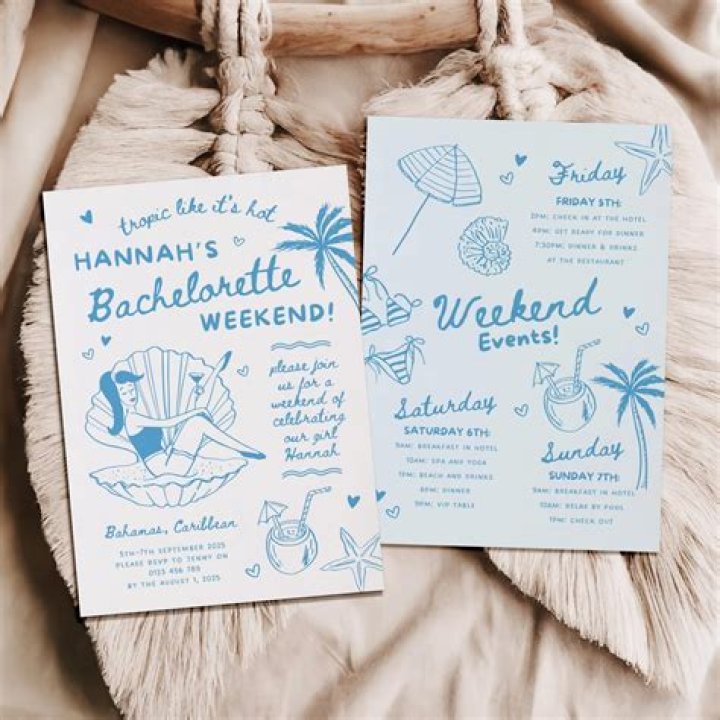 tropic like it's hot
HANNAH'S
Bachelorette
WEEKEND!
please join
us for a
weekend of
celebrating
our girl
Hannah
Bahamas, Caribbean
5TH-7TH SEPTEMBER 2025
PLEASE RSVP TO JENNY ON
0123 456 789
BY THE AUGUST 1, 2025
Friday
FRIDAY 5TH:
2PM: CHECK IN AT THE HOTEL
4PM: GET READY FOR DINNER
7:30PM: DINNER & DRINKS
AT THE RESTAURANT
Weekend
Events!
Saturday
SATURDAY 6TH:
9AM: BREAKFAST IN HOTEL
10AM: SPA AND YOGA
1PM: BEACH AND DRINKS
6PM: DINNER
9PM: VIP TABLE
Sunday
SUNDAY 7TH:
9AM: BREAKFAST IN HOTEL
10AM: RELAX BY POOL
1PM: CHECK OUT